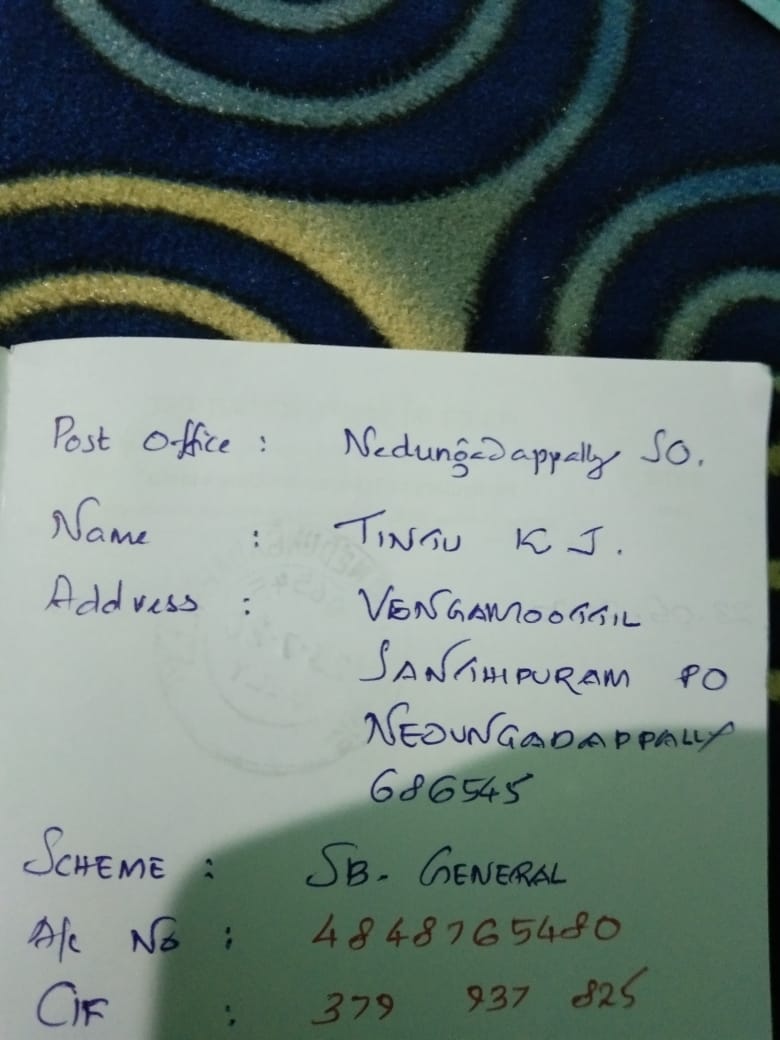 Post Office : Nedungadappally SO.
Name : TINTU K J.
Address : VENGAMOOTTIL
SANTHIPURAM PO
NEDUNGADAPPALLY
686545
SCHEME : SB. GENERAL
A/c No : 4848765480
CIF : 379 937 825